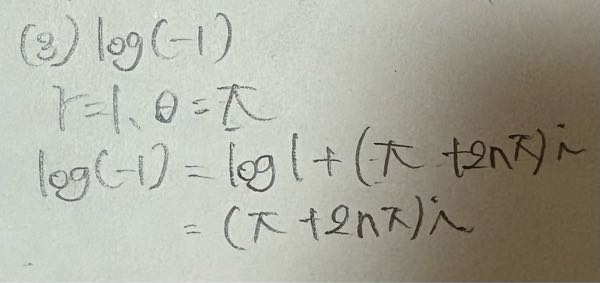 (3) log(-1)
r=1、θ=π
log(-1) = log1 + (π +2nπ)i
= (π +2nπ)i